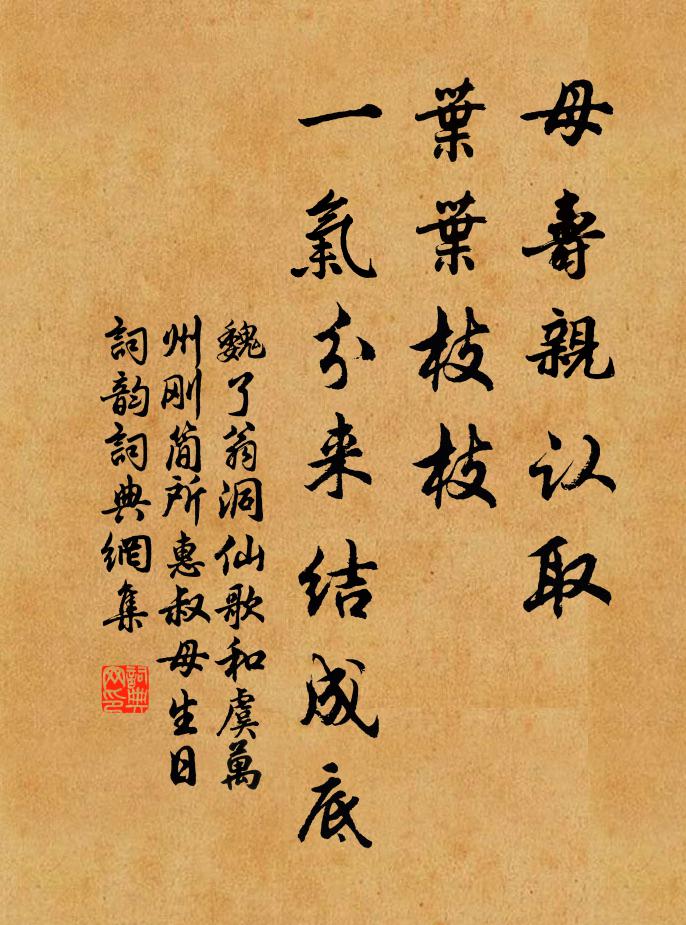 母壽親认取
葉葉枝枝
一氣分来结成底
魏了翁洞仙歌和虞萬
州刚简所惠叔母生日
詞韵詞典網集
詞典
网印